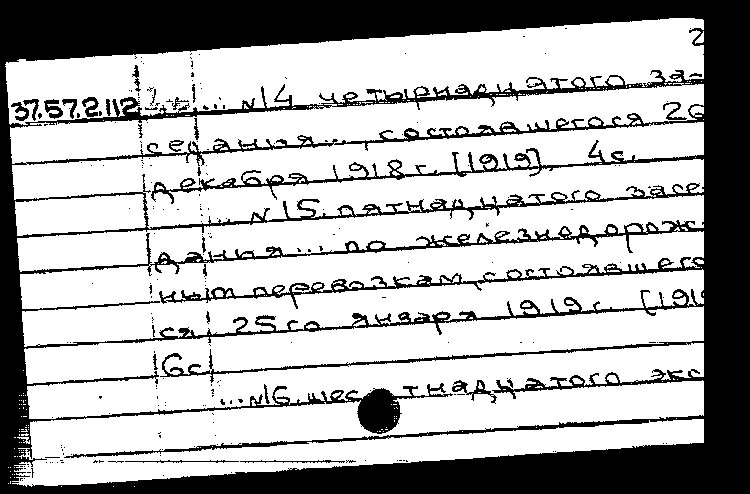 2
37.57.2.112 ... №14 четырнадцатого за-
седания..., состоявшегося 26
декабря 1918 г. [1919]. 4с.
... №15. пятнадцатого засе
дания... по железнодорож-
ным перевозкам, состоявшего
ся 25го января 1919 г. [191
16с
...№16. шес тнадцатого экс